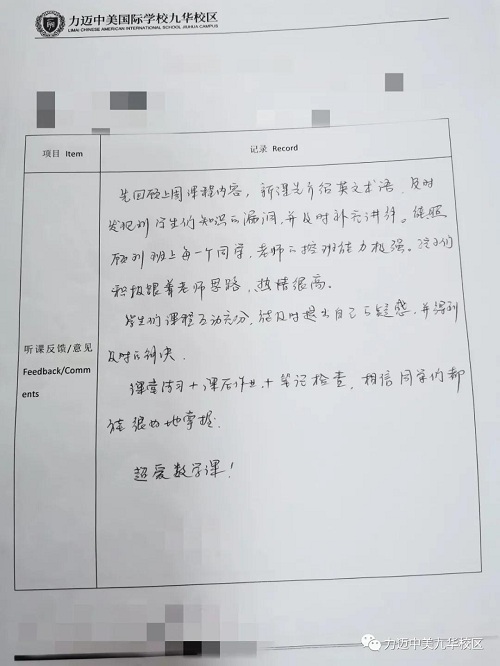 力迈中美国际学校九华校区
LIMAI CHINESE AMERICAN INTERNATIONAL SCHOOL JIUHUA CAMPUS
项目 Item
记录 Record
先回顾上周课程内容，新课先介绍英文术语，及时
发现到学生们知识的漏洞，并及时补充讲解。能照
顾到班上每一个同学，老师的控班能力极强。孩子们
积极跟着老师思路，热情很高。
学生们课程互动充分，能及时提出自己的疑惑，并得到
及时的解决。
课堂练习+课后作业+笔记检查，相信同学们都
能很好地掌握。
超爱数学课！
听课反馈/意见
Feedback/Comm
ents
力迈中美九华校区